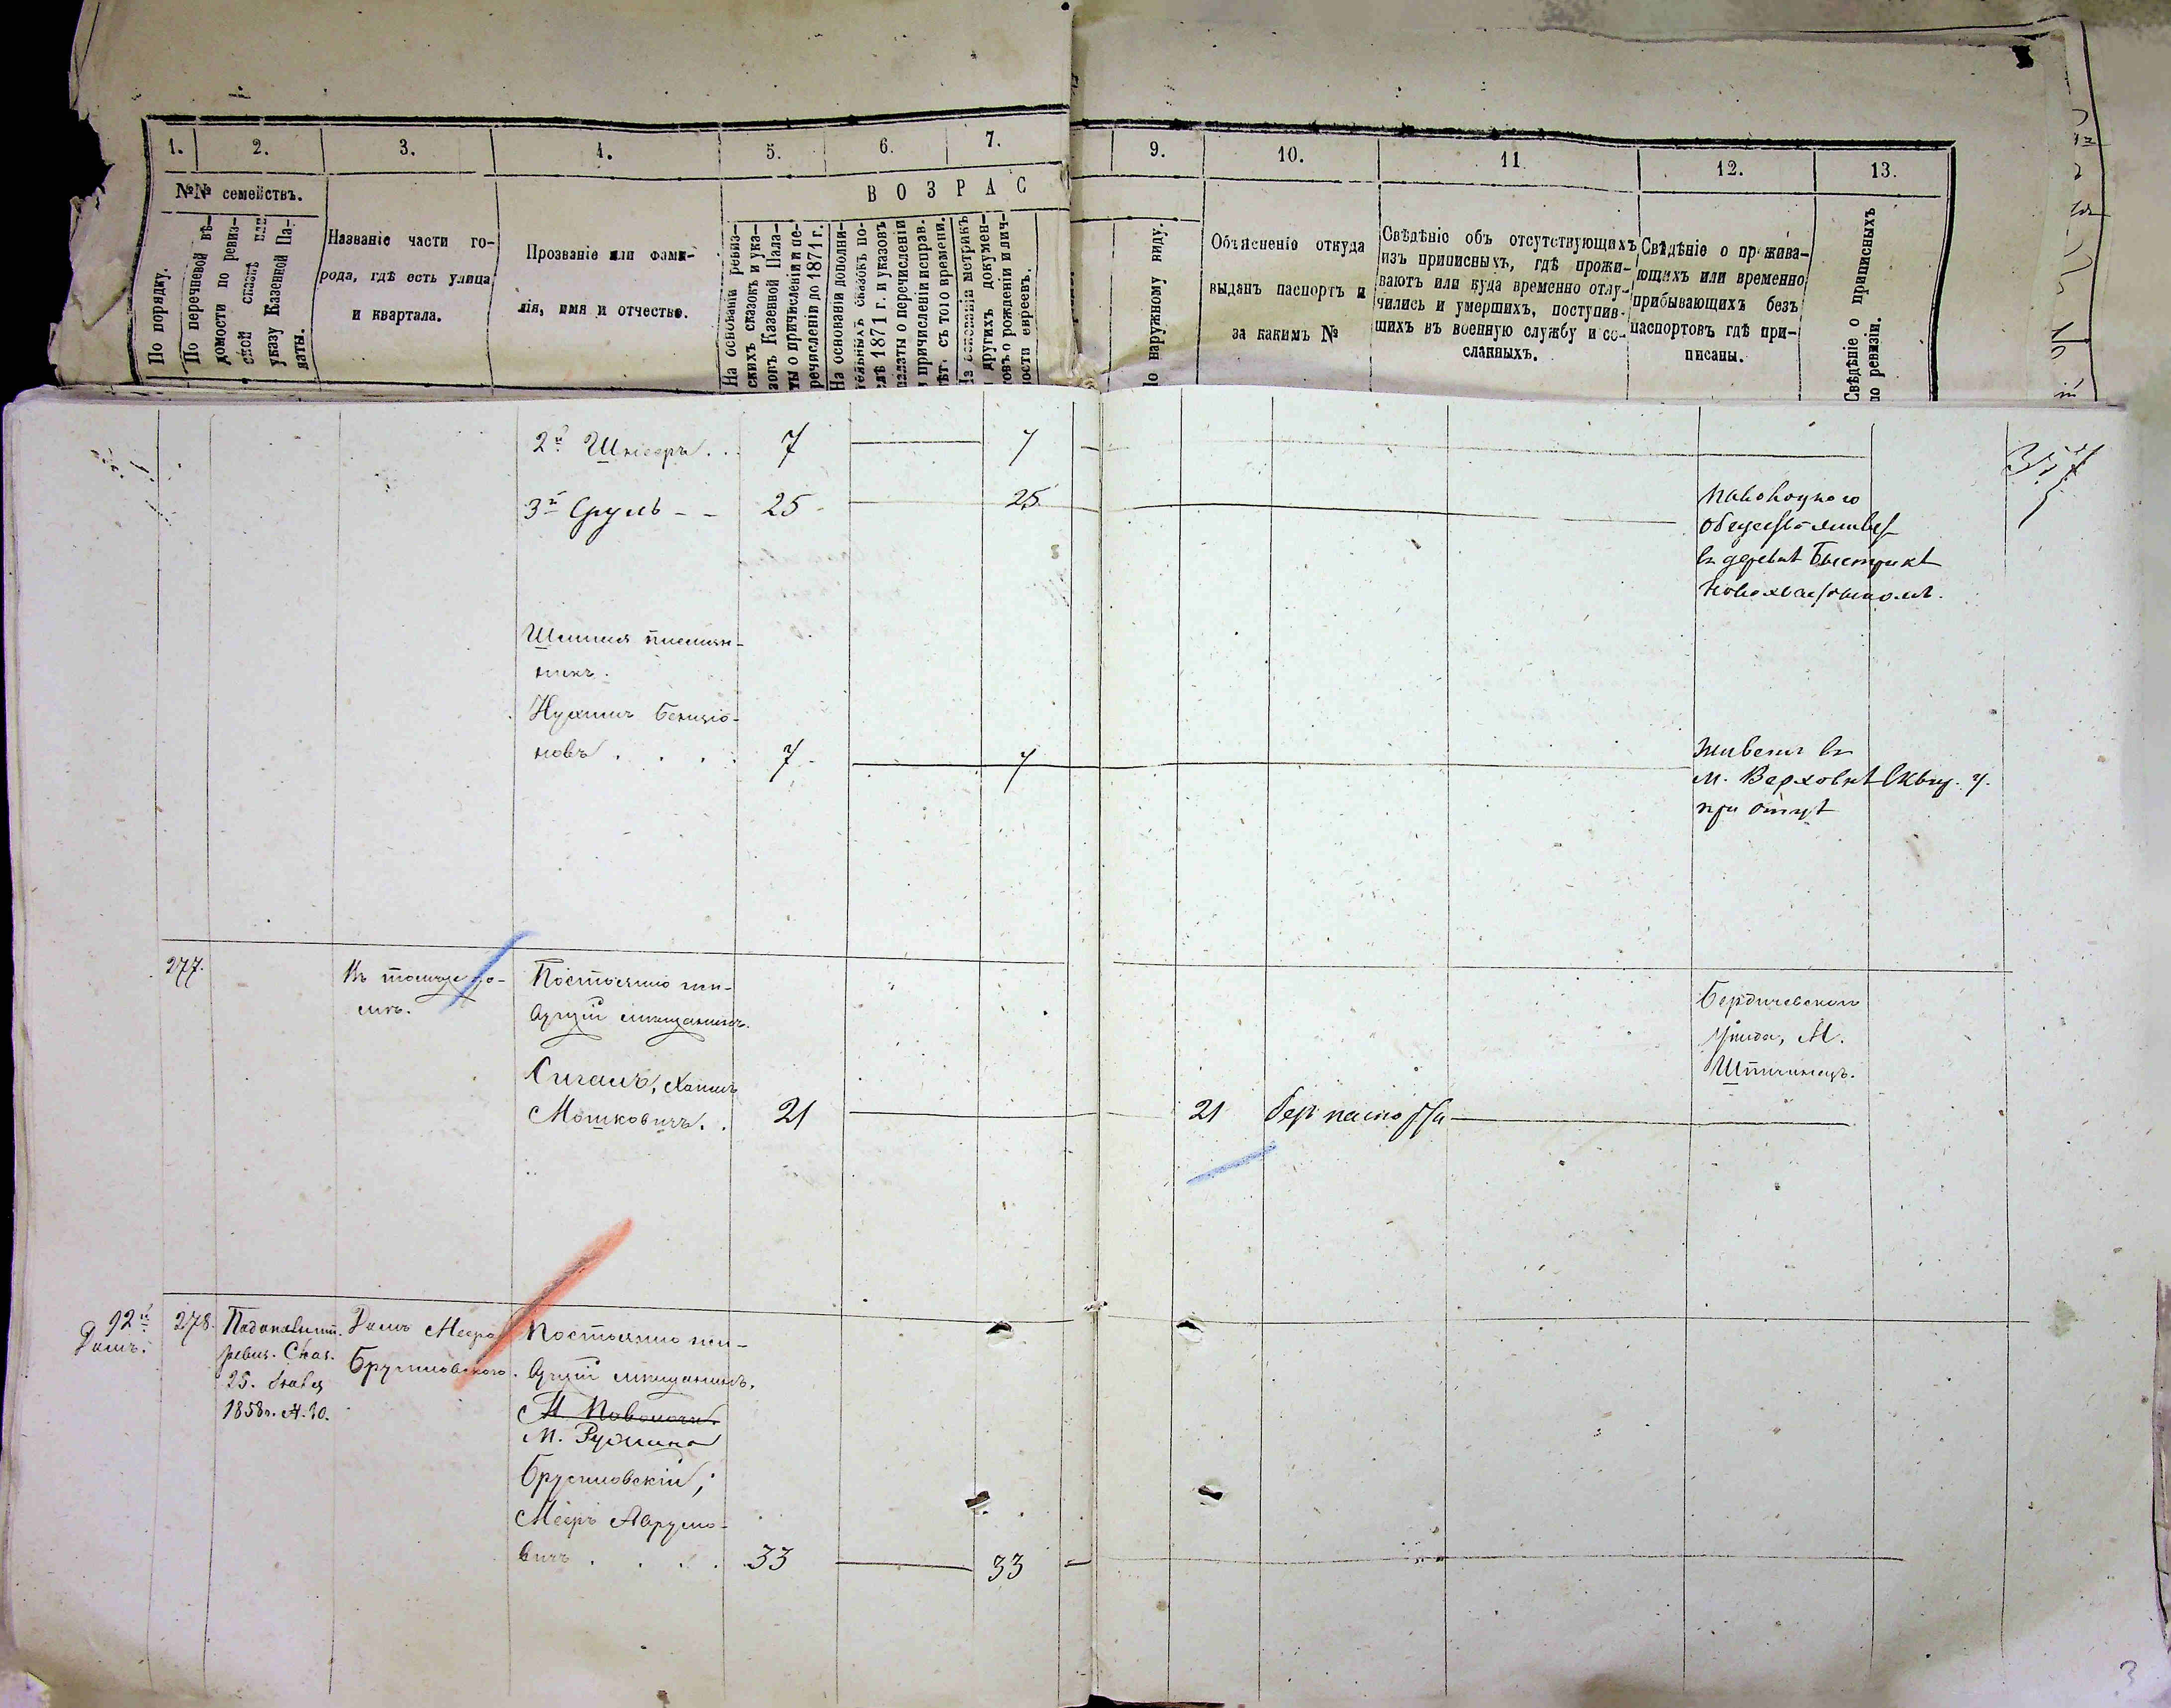 1.
2.
3.
4.
5.
6.
7.
9.
10.
11
12.
13.
№№ семействъ.
По порядку.
По перечневой вѣ-
домости по ревиз-
ской сказкѣ или
указу Казенной Па-
латы.
Названіе части го-
рода, гдѣ есть улица
и квартала.
Прозваніе или фами-
лія, имя и отчество.
ВОЗРАС
На основаніи ревиз-
скихъ сказокъ и ука-
зовъ Казенной Пала-
ты о причисленіи и пе-
речисленіи до 1871 г.
На основаніи дополни-
тельныхъ сказокъ по-
слѣ 1871 г. и указовъ
палаты о перечисленіи
и причисленіи исправ.
лѣт. съ того времени.
На основаніи метрикъ
и другихъ докумен-
товъ о рожденіи и лич-
ности евреевъ.
По наружному виду.
Объясненіе откуда
выданъ паспортъ и
за какимъ №
Свѣдѣніе объ отсутствующихъ
изъ приписныхъ, гдѣ прожи-
ваютъ или куда временно отлу-
чились и умершихъ, поступив-
шихъ въ военную службу и со-
сланныхъ.
Свѣдѣніе о прожива-
ющихъ или временно
прибывающихъ безъ
паспортовъ гдѣ при-
писаны.
Свѣдѣніе о приписныхъ
по ревизіи.
2й Шнееръ. 7 7
3й Сруль 25 25
Паволоцкаго
общества живет
въ деревнѣ Быстрикѣ
Шлиома племян-
никъ.
Нухимъ Бенціо-
новъ 7 7
живетъ въ
м. Верховнѣ Сквир. у.
при отцѣ
277.
Въ томже до-
мѣ.
Постоянно жи-
вущій мѣщанинъ.
Сигалъ, Хаимъ
Мошковичъ. 21
21 без паспорта
Бердичевскаго
уѣзда, М.
92й
Домъ.
278.
ревиз. Сказ.
25.
1858г. № 10.
Домъ Меера
Брусиловского.
Постоянно жи-
вущій мѣщанинъ.
М. Паволочи.
М. Ружина
Брусиловскій;
Мееръ Аврумо-
вичъ 33 33
3